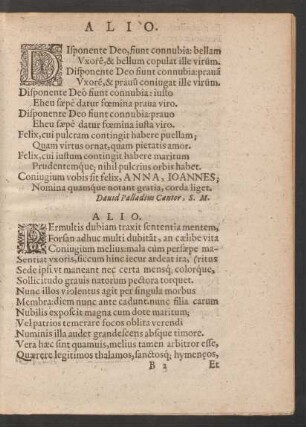 ALIO.
DIsponente Deo, fiunt connubia: bellam
Vxorẽ, & bellum copulat ille virũm.
Disponente Deo fiunt connubia: prauã
Vxorẽ, & prauũ coniugat ille virũm.
Disponente Deo fiunt connubia: iusto
Eheu sæpè datur fœmina praua viro.
Disponente Deo fiunt connubia: prauo
Eheu sæpè datur fœmina iusta viro.
Felix, cui pulcram contingit habere puellam,
Quam virtus ornat, quam pietatis amor.
Felix, cui iustum contingit habere maritum
Prudentemque; nihil pulcrius orbis habet.
Coniugium vobis sit felix, ANNA, IOANNES;
Nomina quamque notant gratia, corda liget.
Dauid Palladius Cantor, S. M.
ALIO.
PErmultis dubiam traxit sententia mentem,
Forsan adhuc multi dubitãt, an cælibe vita
Coniugium melius: mula cùm persæpe ma-
Sentiat vxoris, siccum hinc iecur ardeat ira, (ritus
Sede ipsi vt maneant nec certa mensq́;, colorque,
Sollicitudo grauis natorum pectora torquet.
Nunc illos violentus agit per singula morbus
Membra: diem nunc ante cadunt: nunc filia carum
Nubilis exposcit magna cum dote maritum;
Vel patrios temerare focos oblita verendi
Numinis illa audet grandescens absque timore.
Vera hæc sint quamuis, melius tamen arbitror esse,
Quærere legitimos thalamos, sanctosq́; hymenęos,
B 2 Et